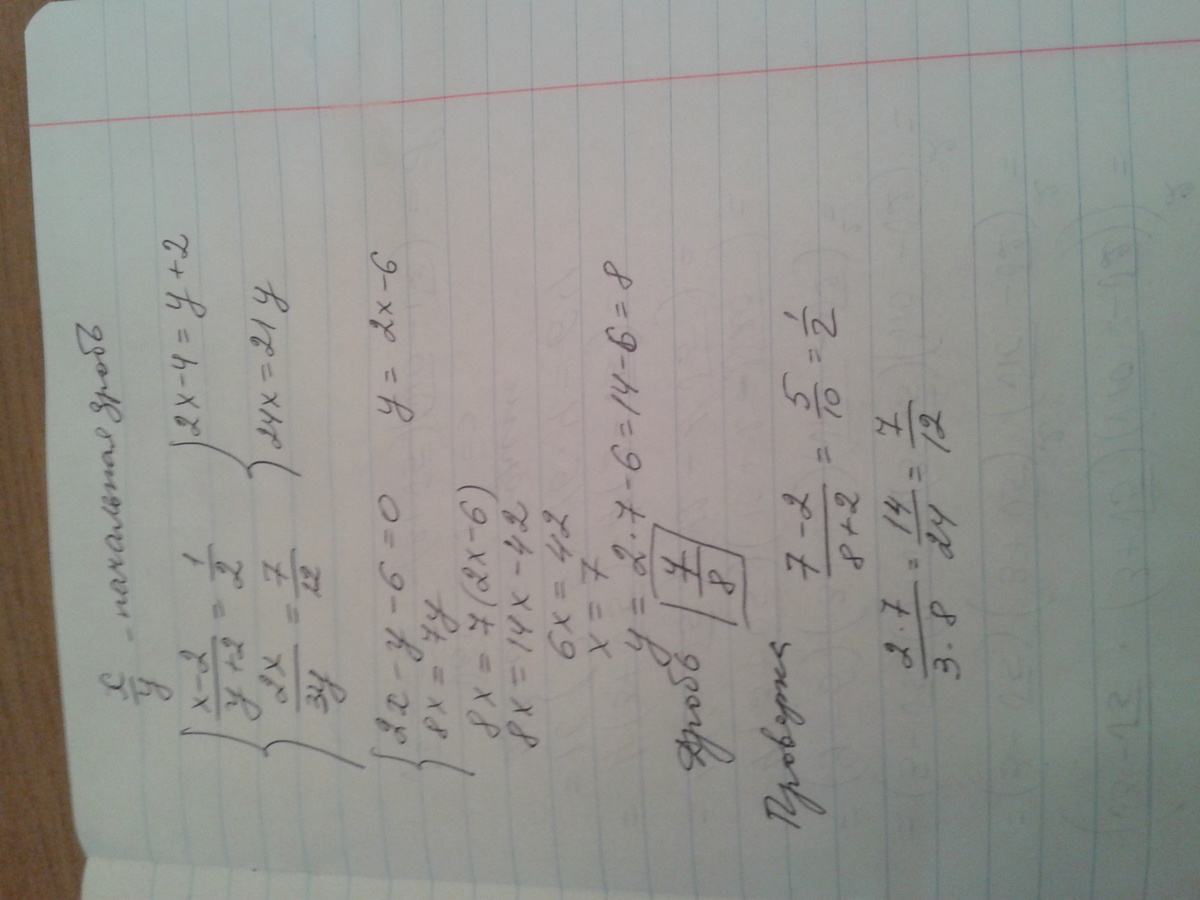 x/y - начальная дробь
{ (x-2)/(y+2) = 1/2 { 2x-4 = y+2
2x/3y = 7/12 24x = 21y
{ 2x - y - 6 = 0 y = 2x-6
8x = 7y
8x = 7(2x-6)
8x = 14x - 42
6x = 42
x = 7
y = 2·7-6 = 14-6 = 8
Дробь 7/8
Проверка (7-2)/(8+2) = 5/10 = 1/2
2·7/3·8 = 14/24 = 7/12